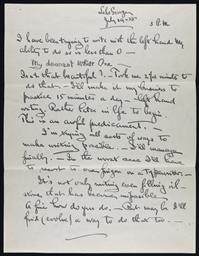 July 29-35-
3 P.M.
I have been trying to write with the left hand. My
ability to do so is less than 0 —
My dearest White One —
Isn't that beautiful? — Took me 2½ minutes to
do that. — I'll make it my business to
practice 15 minutes a day — left hand
writing. Rather late in life to begin.
This is an awful predicament. —
I'm trying all sorts of ways to
make writing possible. — I'll manage
finally. — In the worst case I'll have
to resort to one finger on a Typewriter. —
It's not only writing even filling il-
ness that has become impossible
A fine how do you do. — But may be I'll
find (evolve) a way to do that too. — —